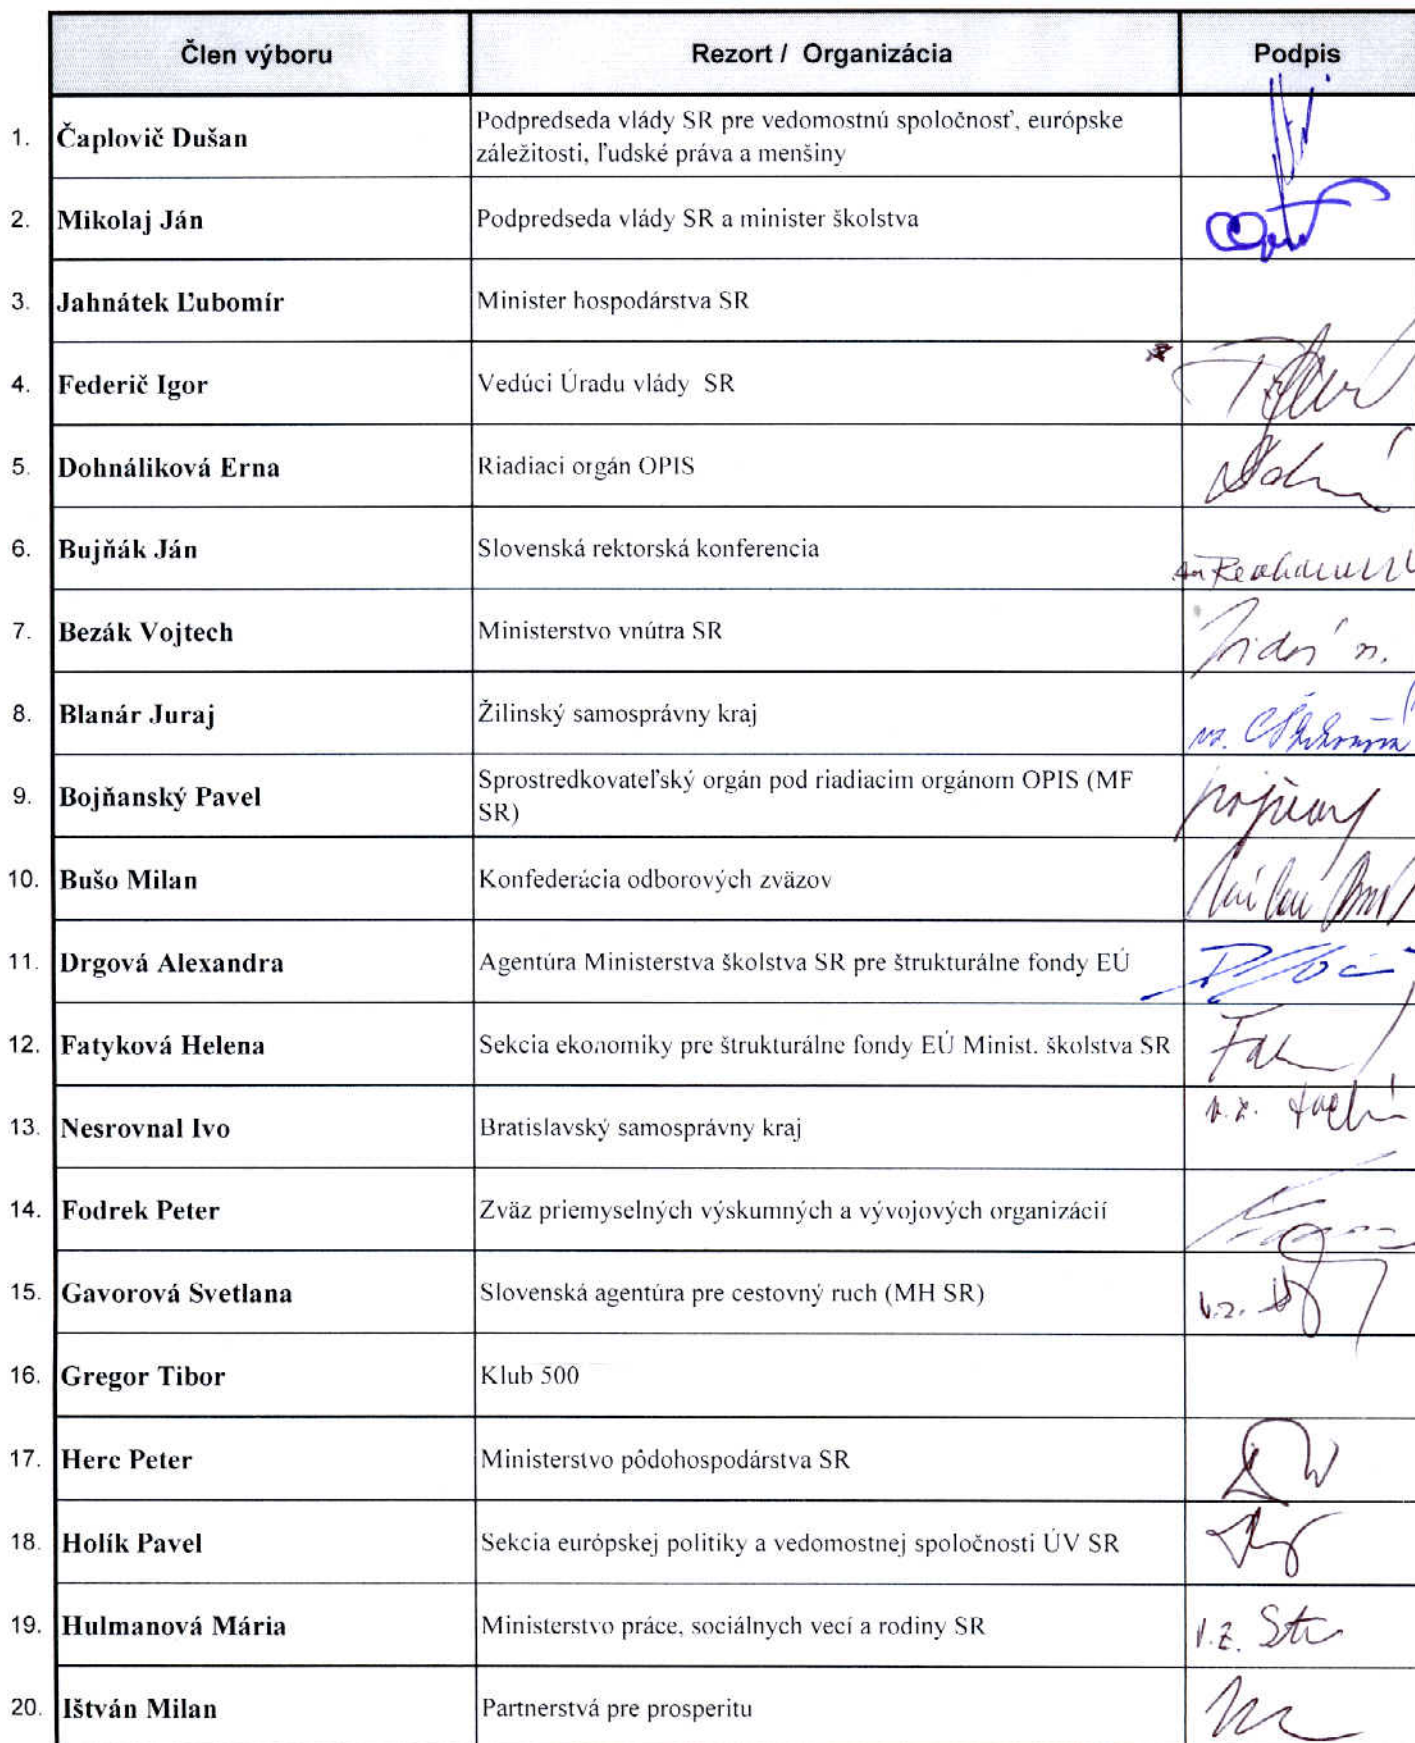 Člen výboru Rezort / Organizácia Podpis
1. Čaplovič Dušan Podpredseda vlády SR pre vedomostnú spoločnosť, európske
záležitosti, ľudské práva a menšiny
2. Mikolaj Ján Podpredseda vlády SR a minister školstva
3. Jahnátek Ľubomír Minister hospodárstva SR
4. Federič Igor Vedúci Úradu vlády SR
5. Dohnáliková Erna Riadiaci orgán OPIS
6. Bujňák Ján Slovenská rektorská konferencia
7. Bezák Vojtech Ministerstvo vnútra SR
8. Blanár Juraj Žilinský samosprávny kraj
9. Bojňanský Pavel Sprostredkovateľský orgán pod riadiacim orgánom OPIS (MF
SR)
10. Bušo Milan Konfederácia odborových zväzov
11. Drgová Alexandra Agentúra Ministerstva školstva SR pre štrukturálne fondy EÚ
12. Fatyková Helena Sekcia ekonomiky pre štrukturálne fondy EÚ Minist. školstva SR
13. Nesrovnal Ivo Bratislavský samosprávny kraj v.z.
14. Fodrek Peter Zväz priemyselných výskumných a vývojových organizácií
15. Gavorová Svetlana Slovenská agentúra pre cestovný ruch (MH SR) v.z.
16. Gregor Tibor Klub 500
17. Herc Peter Ministerstvo pôdohospodárstva SR
18. Holík Pavel Sekcia európskej politiky a vedomostnej spoločnosti ÚV SR
19. Hulmanová Mária Ministerstvo práce, sociálnych vecí a rodiny SR v.z.
20. Ištván Milan Partnerstvá pre prosperitu